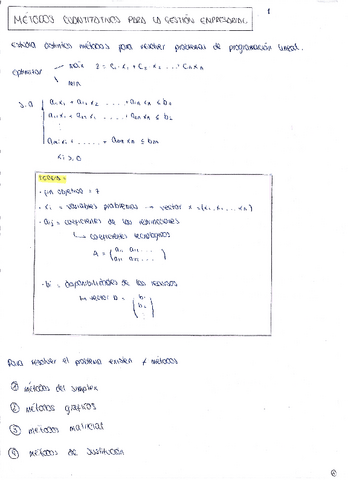 1
MÉTODOS CUANTITATIVOS PARA LA GESTIÓN EMPRESARIAL
estudia distintos métodos para resolver problemas de programación lineal.
optimizar max z = c₁·x₁ + c₂ x₂ ... + cₙxₙ
min
s.a a₁₁x₁ + a₁₂ x₂ ... + a₁ₙ xₙ ≤ b₁
xᵢ ≥ 0
- fin objetivo = z
- xᵢ = variables problemas → vector x = (x₁, x₂ ... xₙ)
- aᵢⱼ = coeficientes de las restricciones
↳ coeficientes tecnológicos
A = (a₁₁ a₁₂ ...
- bᵢ = disponibilidades de los recursos
↳ vector b = (b₁
b₂
Para resolver el problema existen ≠ métodos
① métodos del simplex
② métodos gráficos
③ métodos matricial
④ métodos de sustitución